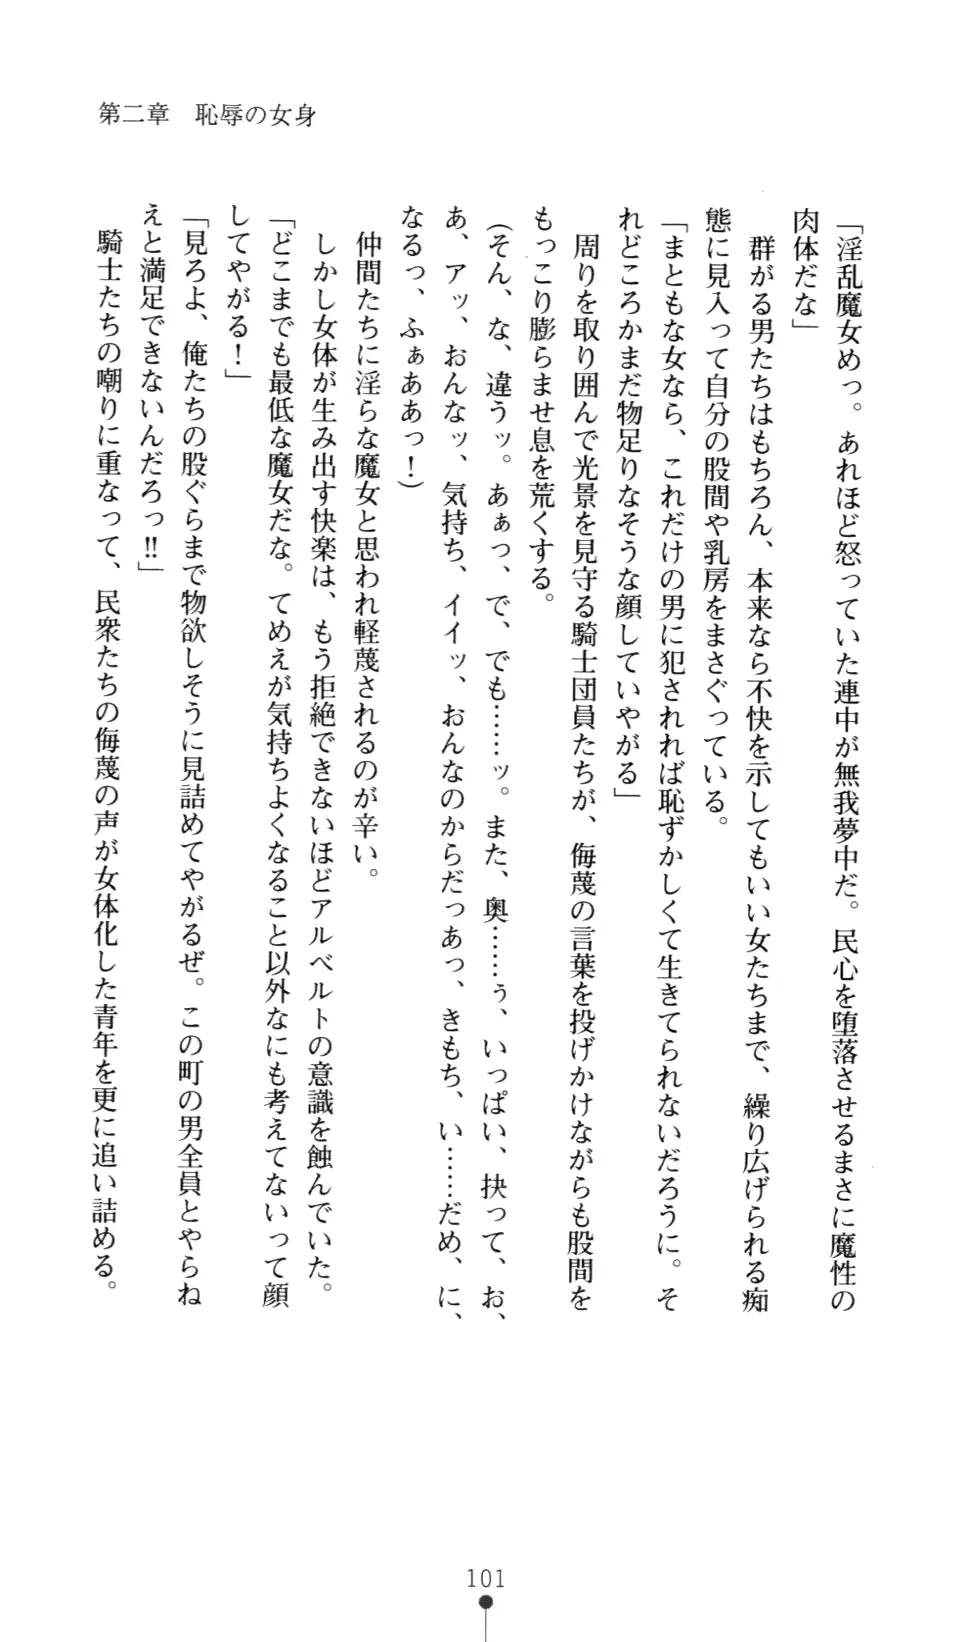 第二章　恥辱の女身
「淫乱魔女めっ。あれほど怒っていた連中が無我夢中だ。民心を堕落させるまさに魔性の
肉体だな」
　群がる男たちはもちろん、本来なら不快を示してもいい女たちまで、繰り広げられる痴
態に見入って自分の股間や乳房をまさぐっている。
「まともな女なら、これだけの男に犯されれば恥ずかしくて生きてられないだろうに。そ
れどころかまだ物足りなそうな顔していやがる」
　周りを取り囲んで光景を見守る騎士団員たちが、侮蔑の言葉を投げかけながらも股間を
もっこり膨らませ息を荒くする。
（そん、な、違うッ。あぁっ、で、でも……ッ。また、奥……ぅ、いっぱい、抉って、お、
あ、アッ、おんなッ、気持ち、イイッ、おんなのからだっあっ、きもち、い……だめ、に、
なるっ、ふぁああっ！）
　仲間たちに淫らな魔女と思われ軽蔑されるのが辛い。
　しかし女体が生み出す快楽は、もう拒絶できないほどアルベルトの意識を蝕んでいた。
「どこまでも最低な魔女だな。てめえが気持ちよくなること以外なにも考えてないって顔
してやがる！」
「見ろよ、俺たちの股ぐらまで物欲しそうに見詰めてやがるぜ。この町の男全員とやらね
えと満足できないんだろっ‼」
　騎士たちの嘲りに重なって、民衆たちの侮蔑の声が女体化した青年を更に追い詰める。
101